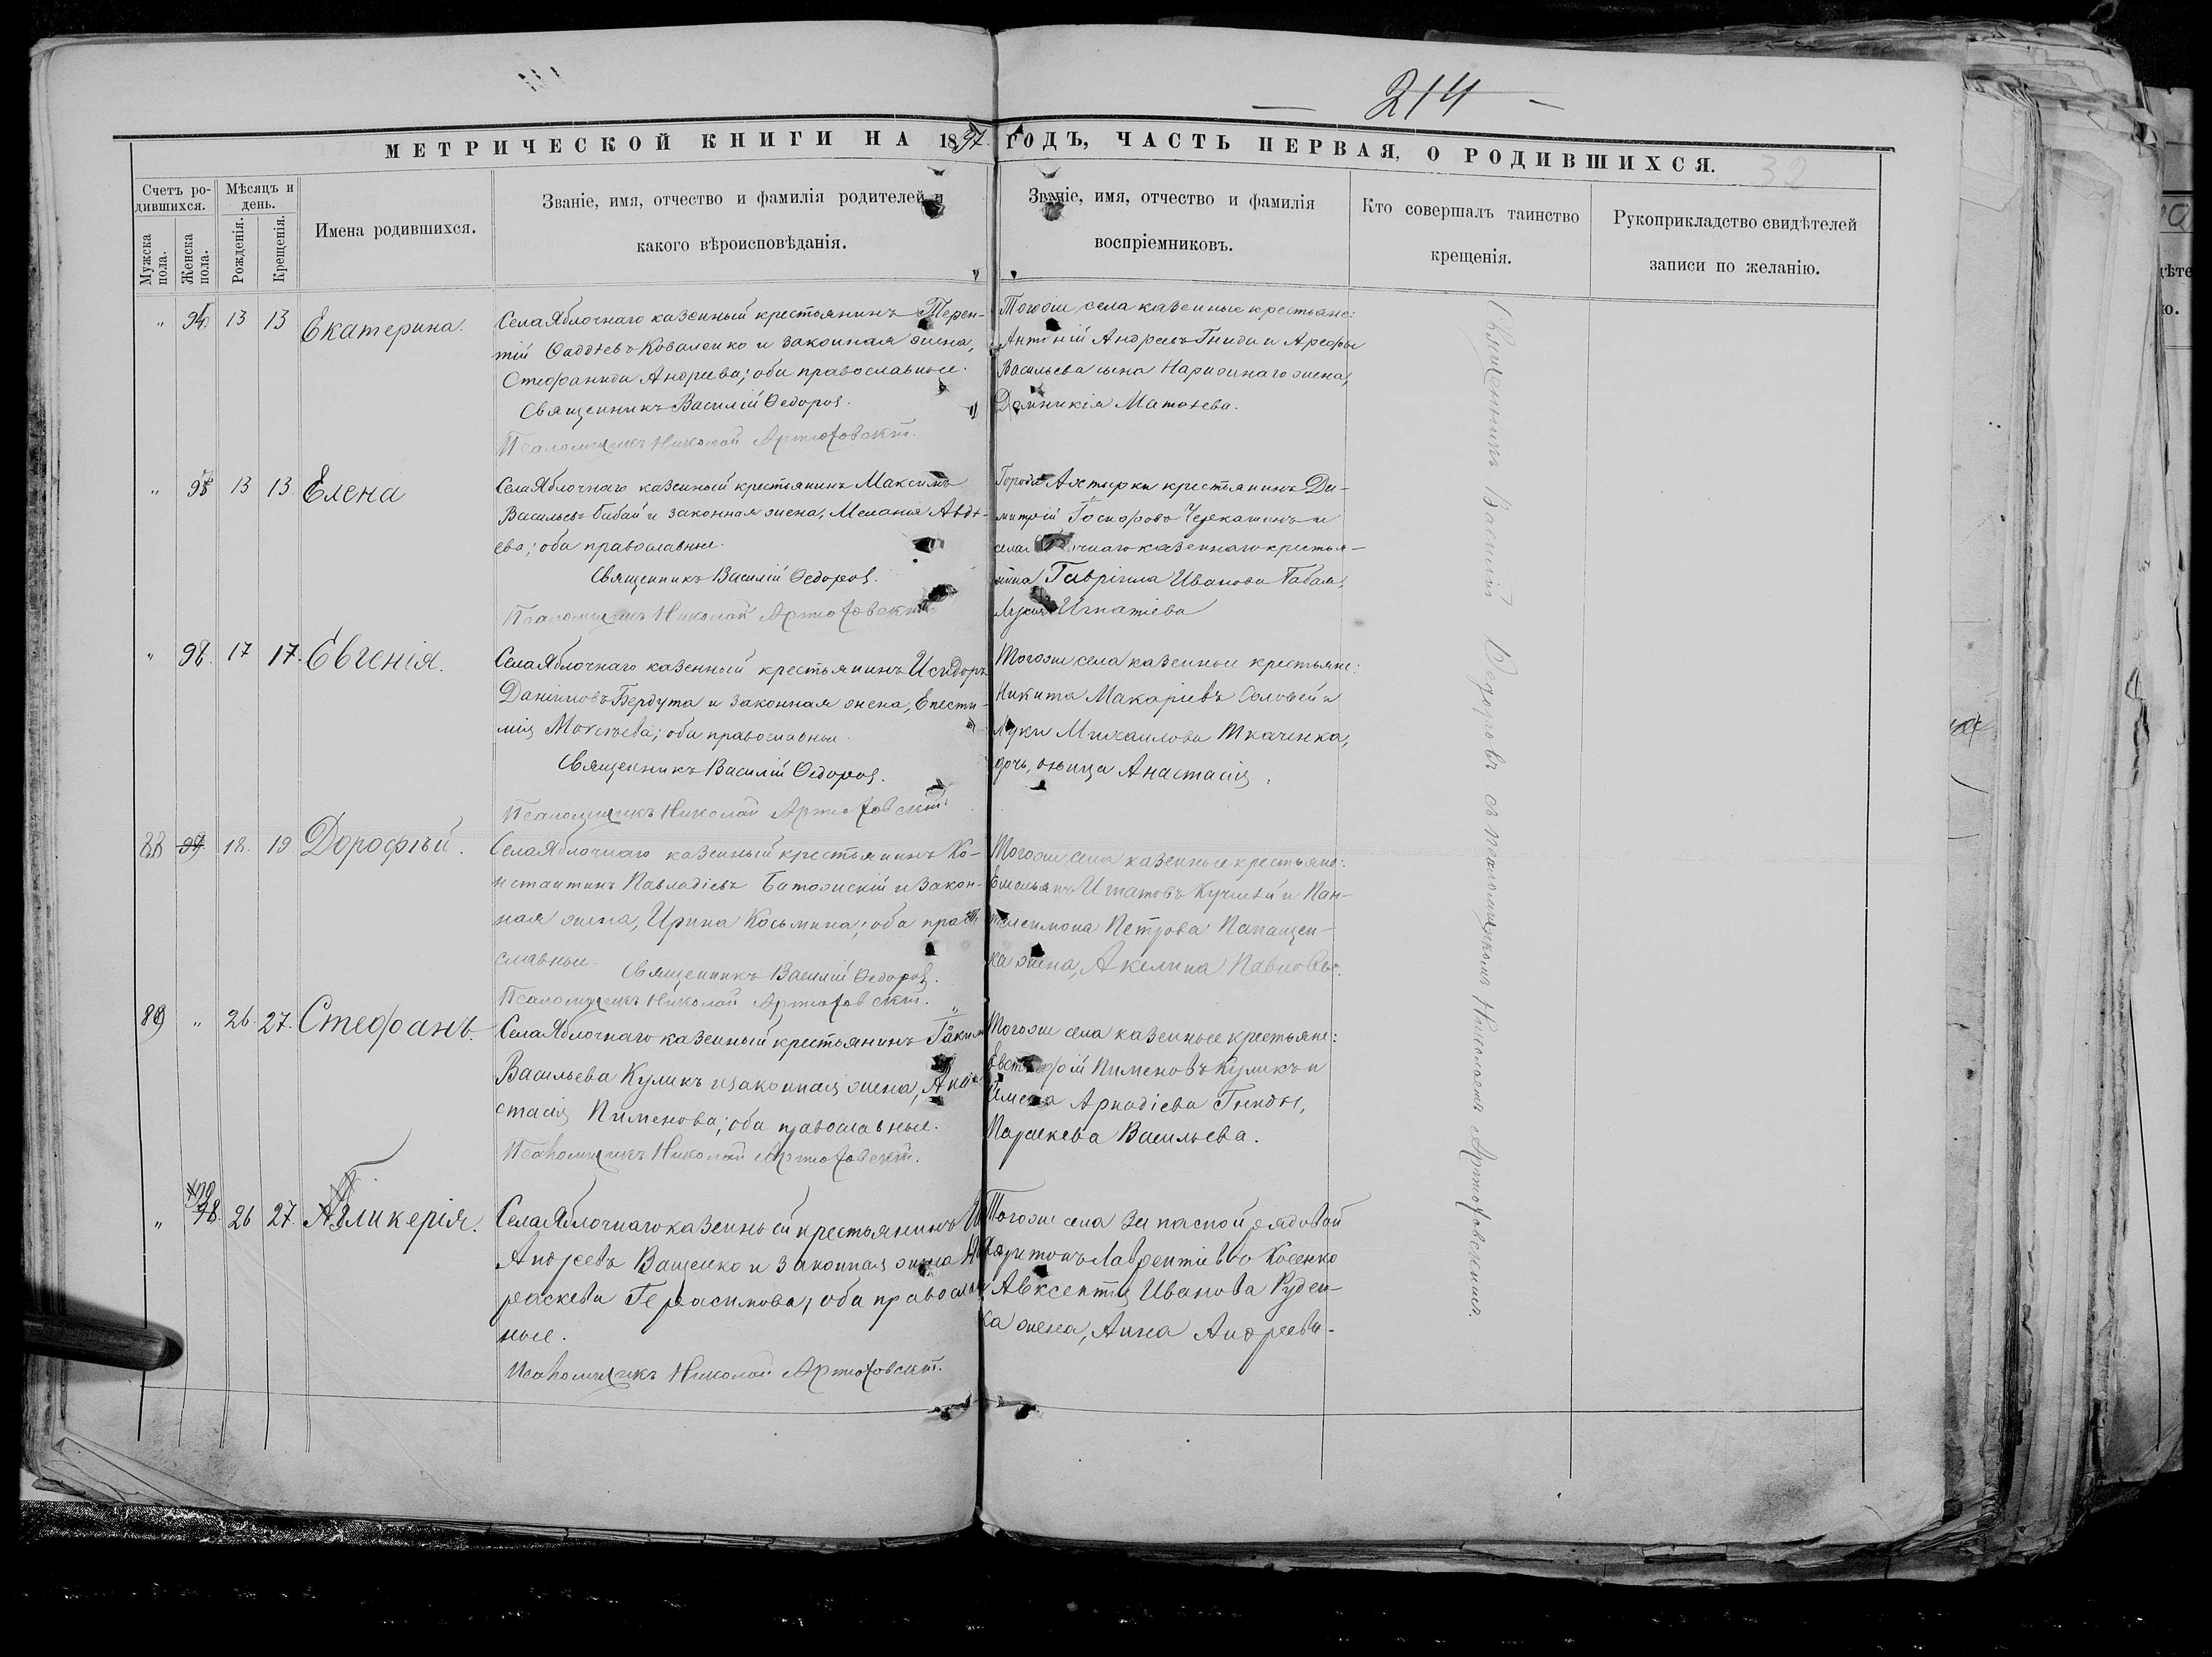 214
МЕТРИЧЕСКОЙ КНИГИ НА 1897 ГОДЪ, ЧАСТЬ ПЕРВАЯ, О РОДИВШИХСЯ.
32
Счетъ ро-
дившихся.
Мужска пола.
Женска пола.
Мѣсяцъ и
день.
Рожденія.
Крещенія.
Имена родившихся.
Званіе, имя, отчество и фамилія родителей и
какого вѣроисповѣданія.
Званіе, имя, отчество и фамилія
воспріемниковъ.
Кто совершалъ таинство
крещенія.
Рукоприкладство свидѣтелей
записи по желанію.
" 13 13 Екатерина.
Села Яблочнаго казенный крестьянинъ Терен-
тій Фаддѣевъ Коваленко и законная жена,
Стефанида Андреева; оба православные.
Священникъ Василій Ѳедоровъ.
Псаломщикъ Николай Артюховскій.
Тогоже села казенные крестьяне:
Антоній Андреевъ Гнида и Арефы
Васильева сына Нарижнаго жена,
Домникія Матѳеева.
" 13 13 Елена
Села Яблочнаго казенный крестьянинъ Максимъ
Васильевъ Бабай и законная жена, Меланія Авдѣ-
ева; оба православные.
Священникъ Василій Ѳедоровъ.
Псаломщикъ Николай Артюховскій.
Города Ахтырки крестьянинъ Ди-
митрій Черкашинъ и
села казеннаго крестья-
нина Гавріила Иванова Бабая,
Игнатіева
" 98. 17 17. Евгенія.
Села Яблочнаго казенный крестьянинъ Исидоръ
Даніиловъ Бердута и законная жена, Еписти-
мія Моисеева; оба православные.
Священникъ Василій Ѳедоровъ.
Псаломщикъ Николай Артюховскій.
Тогоже села казенные крестьяне:
Никита Макаріевъ Соловей и
Луки Михаилова Ткаченка,
дочь, дѣвица Анастасія.
88 99. 18. 19 Дорофѣй.
Села Яблочнаго казенный крестьянинъ Ко-
нстантинъ Павладіевъ и закон-
ная жена, Ирина Косьмина; оба право-
славные.
Священникъ Василій Ѳедоровъ.
Псаломщикъ Николай Артюховскій.
Тогоже села казенные крестьяне:
Емельянъ Игнатовъ и Пан-
телеимона Петрова Папащен-
ка жена, Акелина Павлова.
89 " 26. 27. Стефанъ.
Села Яблочнаго казенный крестьянинъ Іакимъ
Васильева Куликъ и законная жена, Ана-
стасія Пименова; оба православные.
Псаломщикъ Николай Артюховскій.
Тогоже села казенные крестьяне:
Евстафій Пименовъ Куликъ и
Аркадіева Гниды,
Параскева Васильева.
" 26 27. Гликерія.
Села Яблочнаго казенный крестьянинъ
Андреевъ Ващенко и законная жена
раскева Герасимова; оба православ-
ные.
Псаломщикъ Николай Артюховскій.
Тогоже села запасной рядовой
Харитонъ Лаврентіевъ Косенко
Авксентія Иванова Руден-
ка жена, Анна Андреева.
Священникъ Василій Ѳедоровъ съ псаломщикомъ Николаемъ Артюховскимъ.